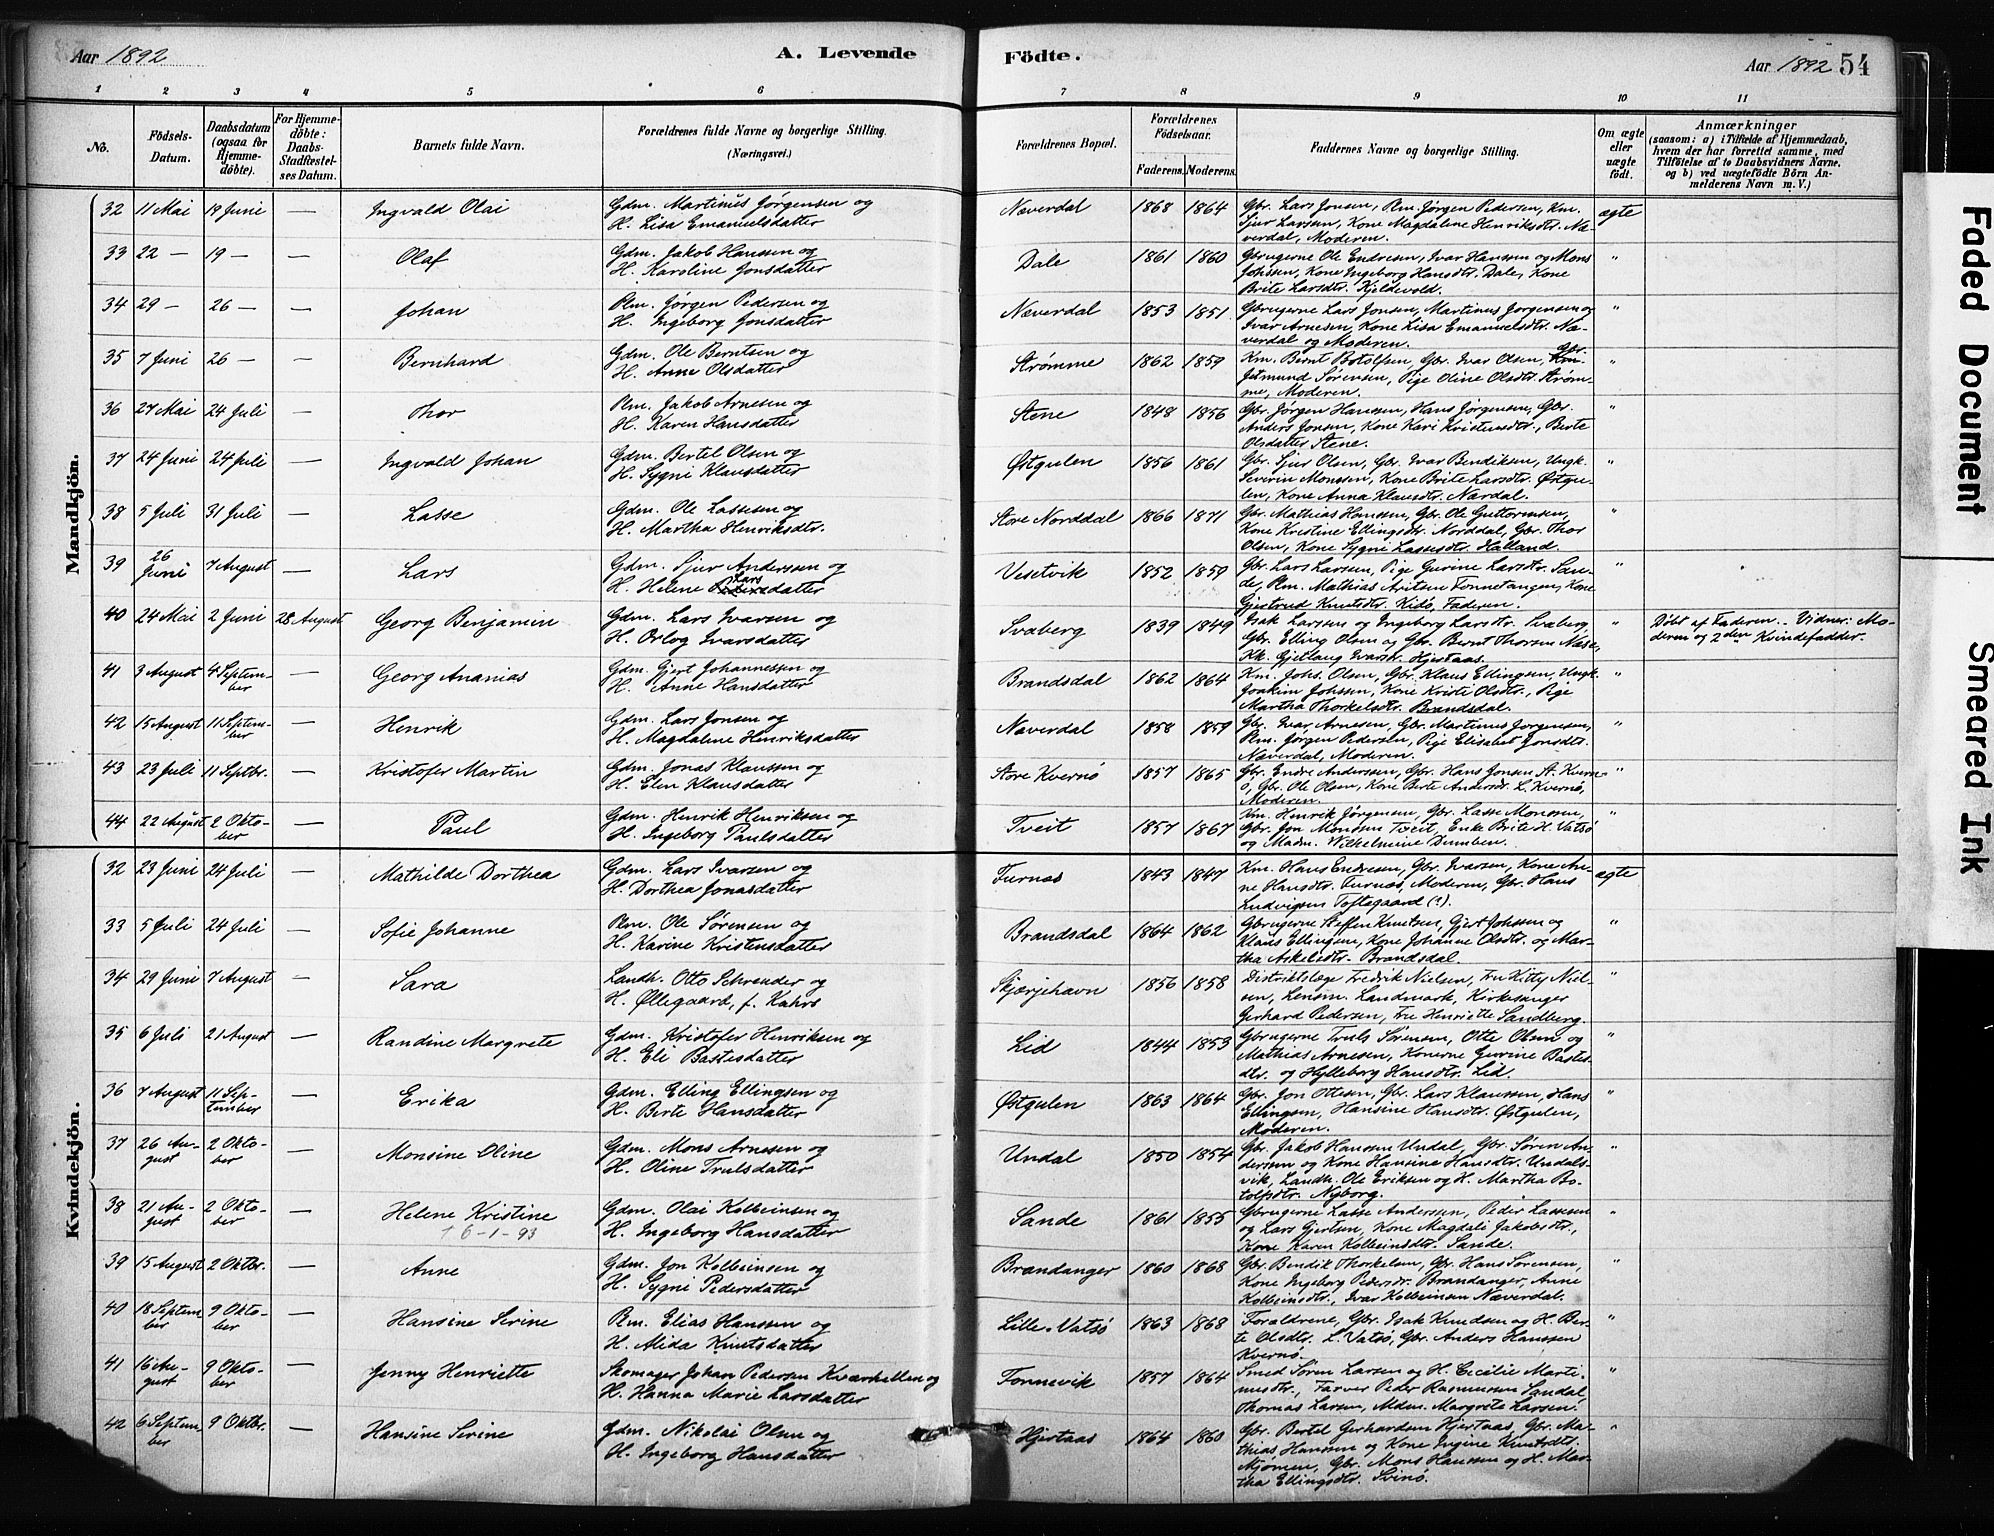 Aar 1892 A. Levende
1 2 3 4 5 6
No. Fødsels-Datum. Daabsdatum (ogsaa for Hjemme-döbte). For Hjemme-döbte: Daabs-Stadfæstel-ses Datum. Barnets fulde Navn. Forældrenes fulde Navne og borgerlige Stilling. (Næringsvei.)
Mandkjön.
32 11 Mai 19 Juni — Ingvald Olai Gdm. Martinus Jørgensen og
H. Lisa Emanuelsdatter
33 22 — 19 — — Olaf Gdm. Jakob Hanssen og
H. Karoline Jonsdatter
34 29 — 26 — — Johan Plm. Jørgen Pedersen og
H. Ingeborg Jonsdatter
35 7 Juni 26 — — Bernhard Gdm. Ole Berntsen og
H. Anne Olsdatter
36 27 Mai 24 Juli — Thor Plm. Jakob Arnesen og
H. Karen Hansdatter
37 24 Juni 24 Juli — Ingvald Johan Gdm. Bertel Olsen og
H. Sygni Klausdatter
38 5 Juli 31 Juli — Lasse Gdm. Ole Lassesen og
H. Martha Henriksdtr.
39 26 Juni 7 August — Lars Gdm. Sjur Anderssen og
H. Helene Larsdatter
40 24 Mai 2 Juni 28 August Georg Benjamin Gdm. Lars Ivarsen og
H. Orlog Ivarsdatter
41 3 August 4 September — Georg Ananias Gdm. Gjert Johannessen og
H. Anne Hansdatter
42 15 August 11 September — Henrik Gdm. Lars Jonsen og
H. Magdalene Henriksdatter
43 23 Juli 11 Septbr. — Kristofer Martin Gdm. Jonas Klaussen og
H. Elen Klausdatter
44 22 August 2 Oktober — Paul Gdm. Henrik Henriksen og
H. Ingeborg Paulsdatter
Kvindekjön.
32 23 Juni 24 Juli — Mathilde Dorthea Gdm. Lars Ivarsen og
H. Dorthea Jonasdatter
33 5 Juli 24 Juli — Sofie Johanne Plm. Ole Sørensen og
H. Karine Kristensdatter
34 29 Juni 7 August — Sara Landh. Otto Schreuder og
H. Øllegaard, f. Kahrs
35 6 Juli 21 August — Randine Margrete Gdm. Kristofer Henriksen og
H. Eli Bastesdatter
36 7 August 11 September — Erika Gdm. Elling Ellingsen og
H. Berte Hansdatter
37 26 August 2 Oktober — Monsine Oline Gdm. Mons Arnesen og
H. Oline Trulsdatter
38 21 August 2 Oktober — Helene Kristine Gdm. Olai Kolbeinsen og
† 6-1-93 H. Ingeborg Hansdatter
39 15 August 2 Oktbr. — Anne Gdm. Jon Kolbeinsen og
H. Sygni Pedersdatter
40 18 September 9 Oktober — Hansine Sirine Plm. Elias Hanssen og
H. Alida Knutsdatter
41 16 August 9 Oktober — Jenny Henriette Skomager Johan Pedersen Kværhellen og
H. Hanna Marie Larsdatter
42 6 September 9 Oktbr. — Hansine Sirine Gdm. Nikolai Olsen og
H. Ingeborg Hansdatter
Födte. Aar 1892 54
7 8 9 10 11
Forældrenes Bopæl. Forældrenes Födselsaar. Faderens. Moderens. Faddernes Navne og borgerlige Stilling. Om ægte eller uægte födt. Anmærkninger (saasom: a) i Tilfælde af Hjemmedaab, hvem der har forrettet samme, med Tilföielse af to Daabsvidners Navne, og b) ved uægtefödte Börn Anmelderens Navn m. V.)
Naverdal 1868 1864 Gbr. Lars Jonsen, Plm. Jørgen Pedersen, Km. ægte
Sjur Larssen, Kone Magdalene Henriksdtr. Na-
verdal, Moderen.
Dale 1861 1860 Gbrugerne Ole Endresen, Ivar Hanssen og Mons "
Johssen, Kone Ingeborg Hansdtr. Dale, Kone
Brite Larsdtr. Kjeldevold.
Naverdal 1853 1851 Gbrugerne Lars Jonsen, Martinus Jørgensen og "
Ivar Arnesen, Kone Lisa Emanuelsdtr. Na-
verdal og Moderen.
Strømme 1862 1859 Km. Bernt Botolfsen, Gbr. Ivar Olsen, Gbr. "
Jetmund Sørensen, Pige Oline Olsdtr. Strøm-
me, Moderen.
Stene 1848 1856 Gbr. Jørgen Hanssen, Hans Jørgensen, Gbr. "
Anders Jonsen, Kone Kari Kristensdtr., Berte
Olsdatter Stene.
Østgulen 1856 1861 Gbr. Sjur Olsen, Gbr. Ivar Bendiksen, Ungk. "
Severin Monssen, Kone Brite Larsdtr. Østgu-
len, Kone Anna Klausdtr. Nordal.
Store Norddal 1866 1871 Gbr. Mathias Hanssen, Gbr. Ole Guttormsen, "
Kone Kristine Ellingsdtr. Norddal, Gbr. Thor
Olsen, Kone Sygni Lassesdtr. Halland.
Vesetvik 1852 1859 Gbr. Lars Larssen, Pige Gurine Larsdtr. San- "
de, Plm. Mathias Aritsen Tonnetangen, Kone
Gjertrud Knutsdtr. Kidø, Faderen.
Svaberg 1839 1849 Isak Larssen og Ingeborg Larsdtr. Svaberg " Döbt af Faderen. - Vidner: Mo-
Gbr. Elling Olsen og Gbr. Bernt Thorsen Nase, deren og 2den Kvindefadder.
Kk. Gjetlaug Ivarsd. Hjertaas.
Brandsdal 1862 1864 Km. Johs. Olsen, Gbr. Klaus Ellingsen, Ungk. "
Joakim Johssen, Kone Kristi Olsdtr., Pige
Martha Thorkelsdtr. Brandsdal.
Naverdal 1858 1859 Gbr. Ivar Arnesen, Gbr. Martinus Jørgensen, "
Plm. Jørgen Pedersen, Pige Elisabet Jonsdtr.
Naverdal, Moderen.
Store Kvernø 1857 1865 Gbr. Endre Anderssen, Gbr. Hans Jonsen St. Kvern- "
ø, Gbr. Ole Olsen, Kone Berte Andersdtr. L. Kvernø,
Moderen.
Tveit 1857 1867 Km. Henrik Jørgensen, Gbr. Lasse Monssen, "
Gbr. Jon Monssen Tveit, Enke Brite H. Vatsø
og Madm. Wilhelmine Dumben.
Furnæs 1843 1847 Km. Hans Endresen, Gbr. Ivarsen, Kone An- ægte
ne Hansdtr. Furnæs, Moderen, Gbr. Hans
Ludvigsen Toftegaard (?).
Brandsdal 1864 1862 Gbrugerne Steffen Knutsen, Gjert Johssen og "
Klaus Ellingsen, Kone Johanne Olsdtr. og Mar-
tha Askelsdtr. Brandsdal.
Skjærjehavn 1856 1858 Distriktslæge Fredrik Nielsen, Fru Kitty Niel- "
sen, Lensm. Landmark, Kirkesanger
Gerhard Pedersen, Fru Henriette Sandberg.
Lid 1844 1853 Gbrugerne Truls Sørensen, Otte Olsen og "
Mathias Arnesen, Konerne Gurine Bastes-
dtr. og Hylleborg Hansdtr. Lid.
Østgulen 1863 1864 Gbr. Jon Ottesen, Gbr. Lars Klaussen, Hans "
Ellingsen, Hansine Hansdtr. Østgulen,
Moderen.
Undal 1850 1854 Gbr. Jakob Hanssen Undal, Gbr. Søren An- "
dersen og Kone Hansine Hansdtr. Undals-
vik, Landh. Ole Eriksen og H. Martha Bo-
tolfsdtr. Nyborg.
Sande 1861 1855 Gbrugerne Lasse Anderssen, Peder Lassesen "
og Lars Gjertsen, Kone Magdali Jakobsdtr.,
Kone Karen Kolbeinsdtr. Sande.
Brandanger 1860 1868 Gbr. Bendik Thorkelsen, Gbr. Hans Sørensen, "
Kone Ingeborg Pedersdtr. Brandanger, Anne
Kolbeinsdtr., Ivar Kolbeinsen Næverdal.
Lille-Vatsø 1863 1868 Forældrene, Gbr. Isak Knudsen og H. Ber- "
te Olsdtr. L. Vatsø, Gbr. Anders Hanssen
Kvernø.
Tonnevik 1857 1864 Smed Søren Larsen og H. Cecilie Marti- "
nusdtr., Farver Peder Rasmussen Sandal,
Thomas Larsen, Mdm. Margrete Larsen.
Hjertaas 1864 1860 Gbr. Bertel Gerhardsen Hjertaas, Gbr. Ma- "
thias Hanssen og Kone Ingine Knutsdtr.
Njømen, Gbr. Mons Hanssen og H. Mar-
tha Ellingsdtr. Svinø.
Faded Document
Smeared Ink